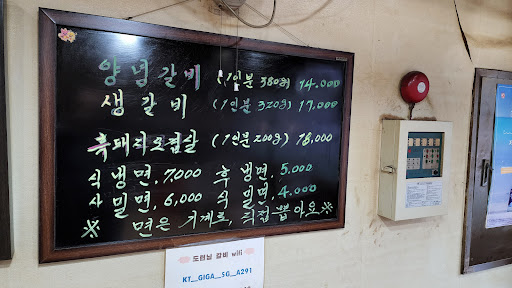 양념갈비 (1인분 380g) 14.000
생갈비 (1인분 320g) 17,000
흑돼지오겹살 (1인분 200g) 18,000
식 냉면, 7,000 후 냉면, 5.000
사 밀면, 6,000 식 밀면, 4.000
※ 면은 기계로, 직접 뽑아요 ※
도련님 갈비 wifi
KT_GIGA_5G_A291